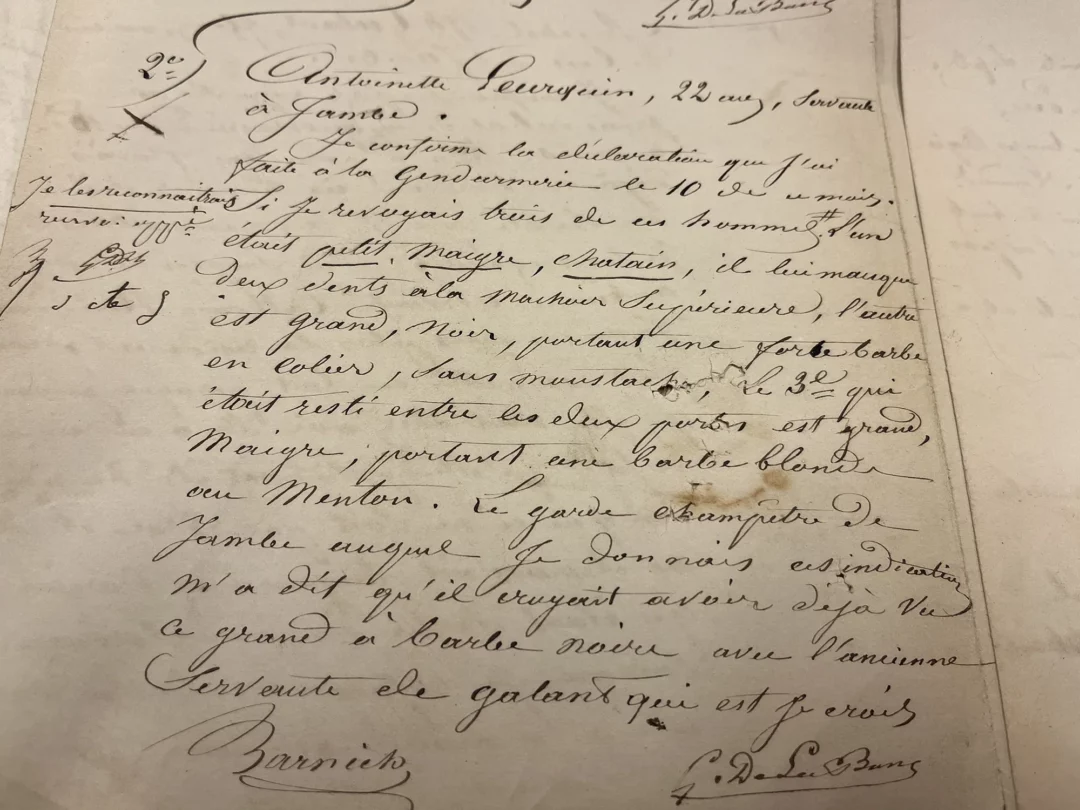 G. De Le Bang
2e
Antoinette Leurquin, 22 ans, servante
à Jambe.
Je confirme la déclaration que j'ai
faite à la Gendarmerie le 10 de ce mois.
Je les reconnaitrais
Si je revoyais trois de ces hommes # L'un
renvoi
était petit, maigre, chatain, il lui manque
deux dents à la machoir Supérieure, l'autre
est grand, noir, portant une forte barbe
en colier, sans moustache, Le 3e qui
était resté entre les deux portes est grand,
Maigre, portant une barbe blonde
au Menton. Le garde champêtre de
Jambe auquel Je donnais ces indications
m'a dit qu'il croyait avoir déjà vu
ce grand à barbe noire avec l'ancienne
Servante de galant qui est je crois
Barnich
G. De Le Bang